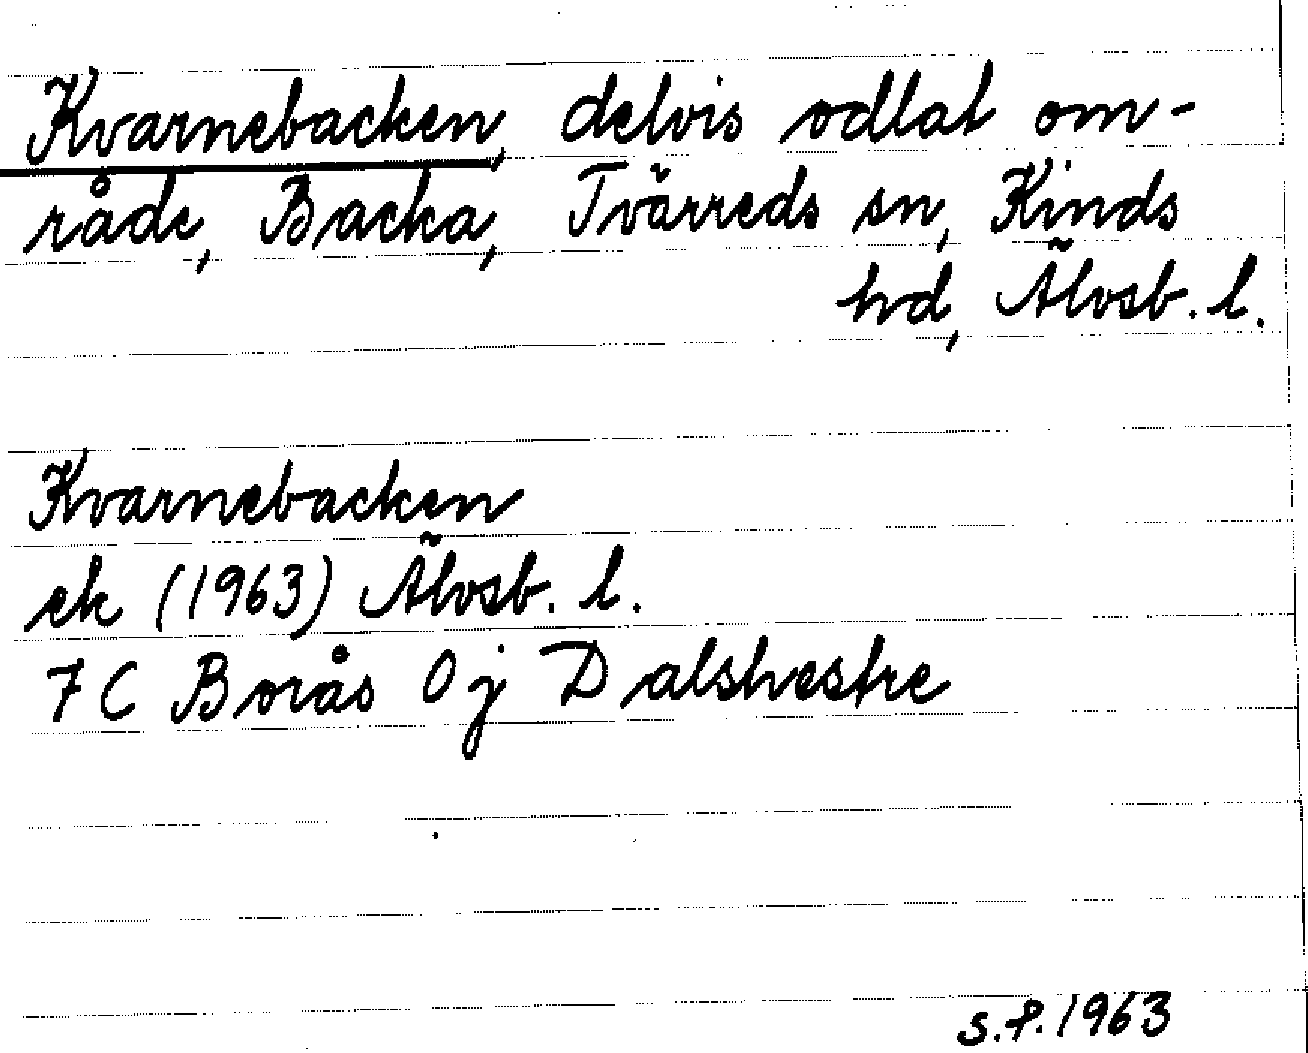 Kvarnebacken, delvis odlat om-
råde, Backa, Tvärreds sn, Kinds
hd, Älvsb. l.
Kvarnebacken
ek (1963) Älvsb. l.
7 C Borås 0 j Dalshestre
S.F. 1963